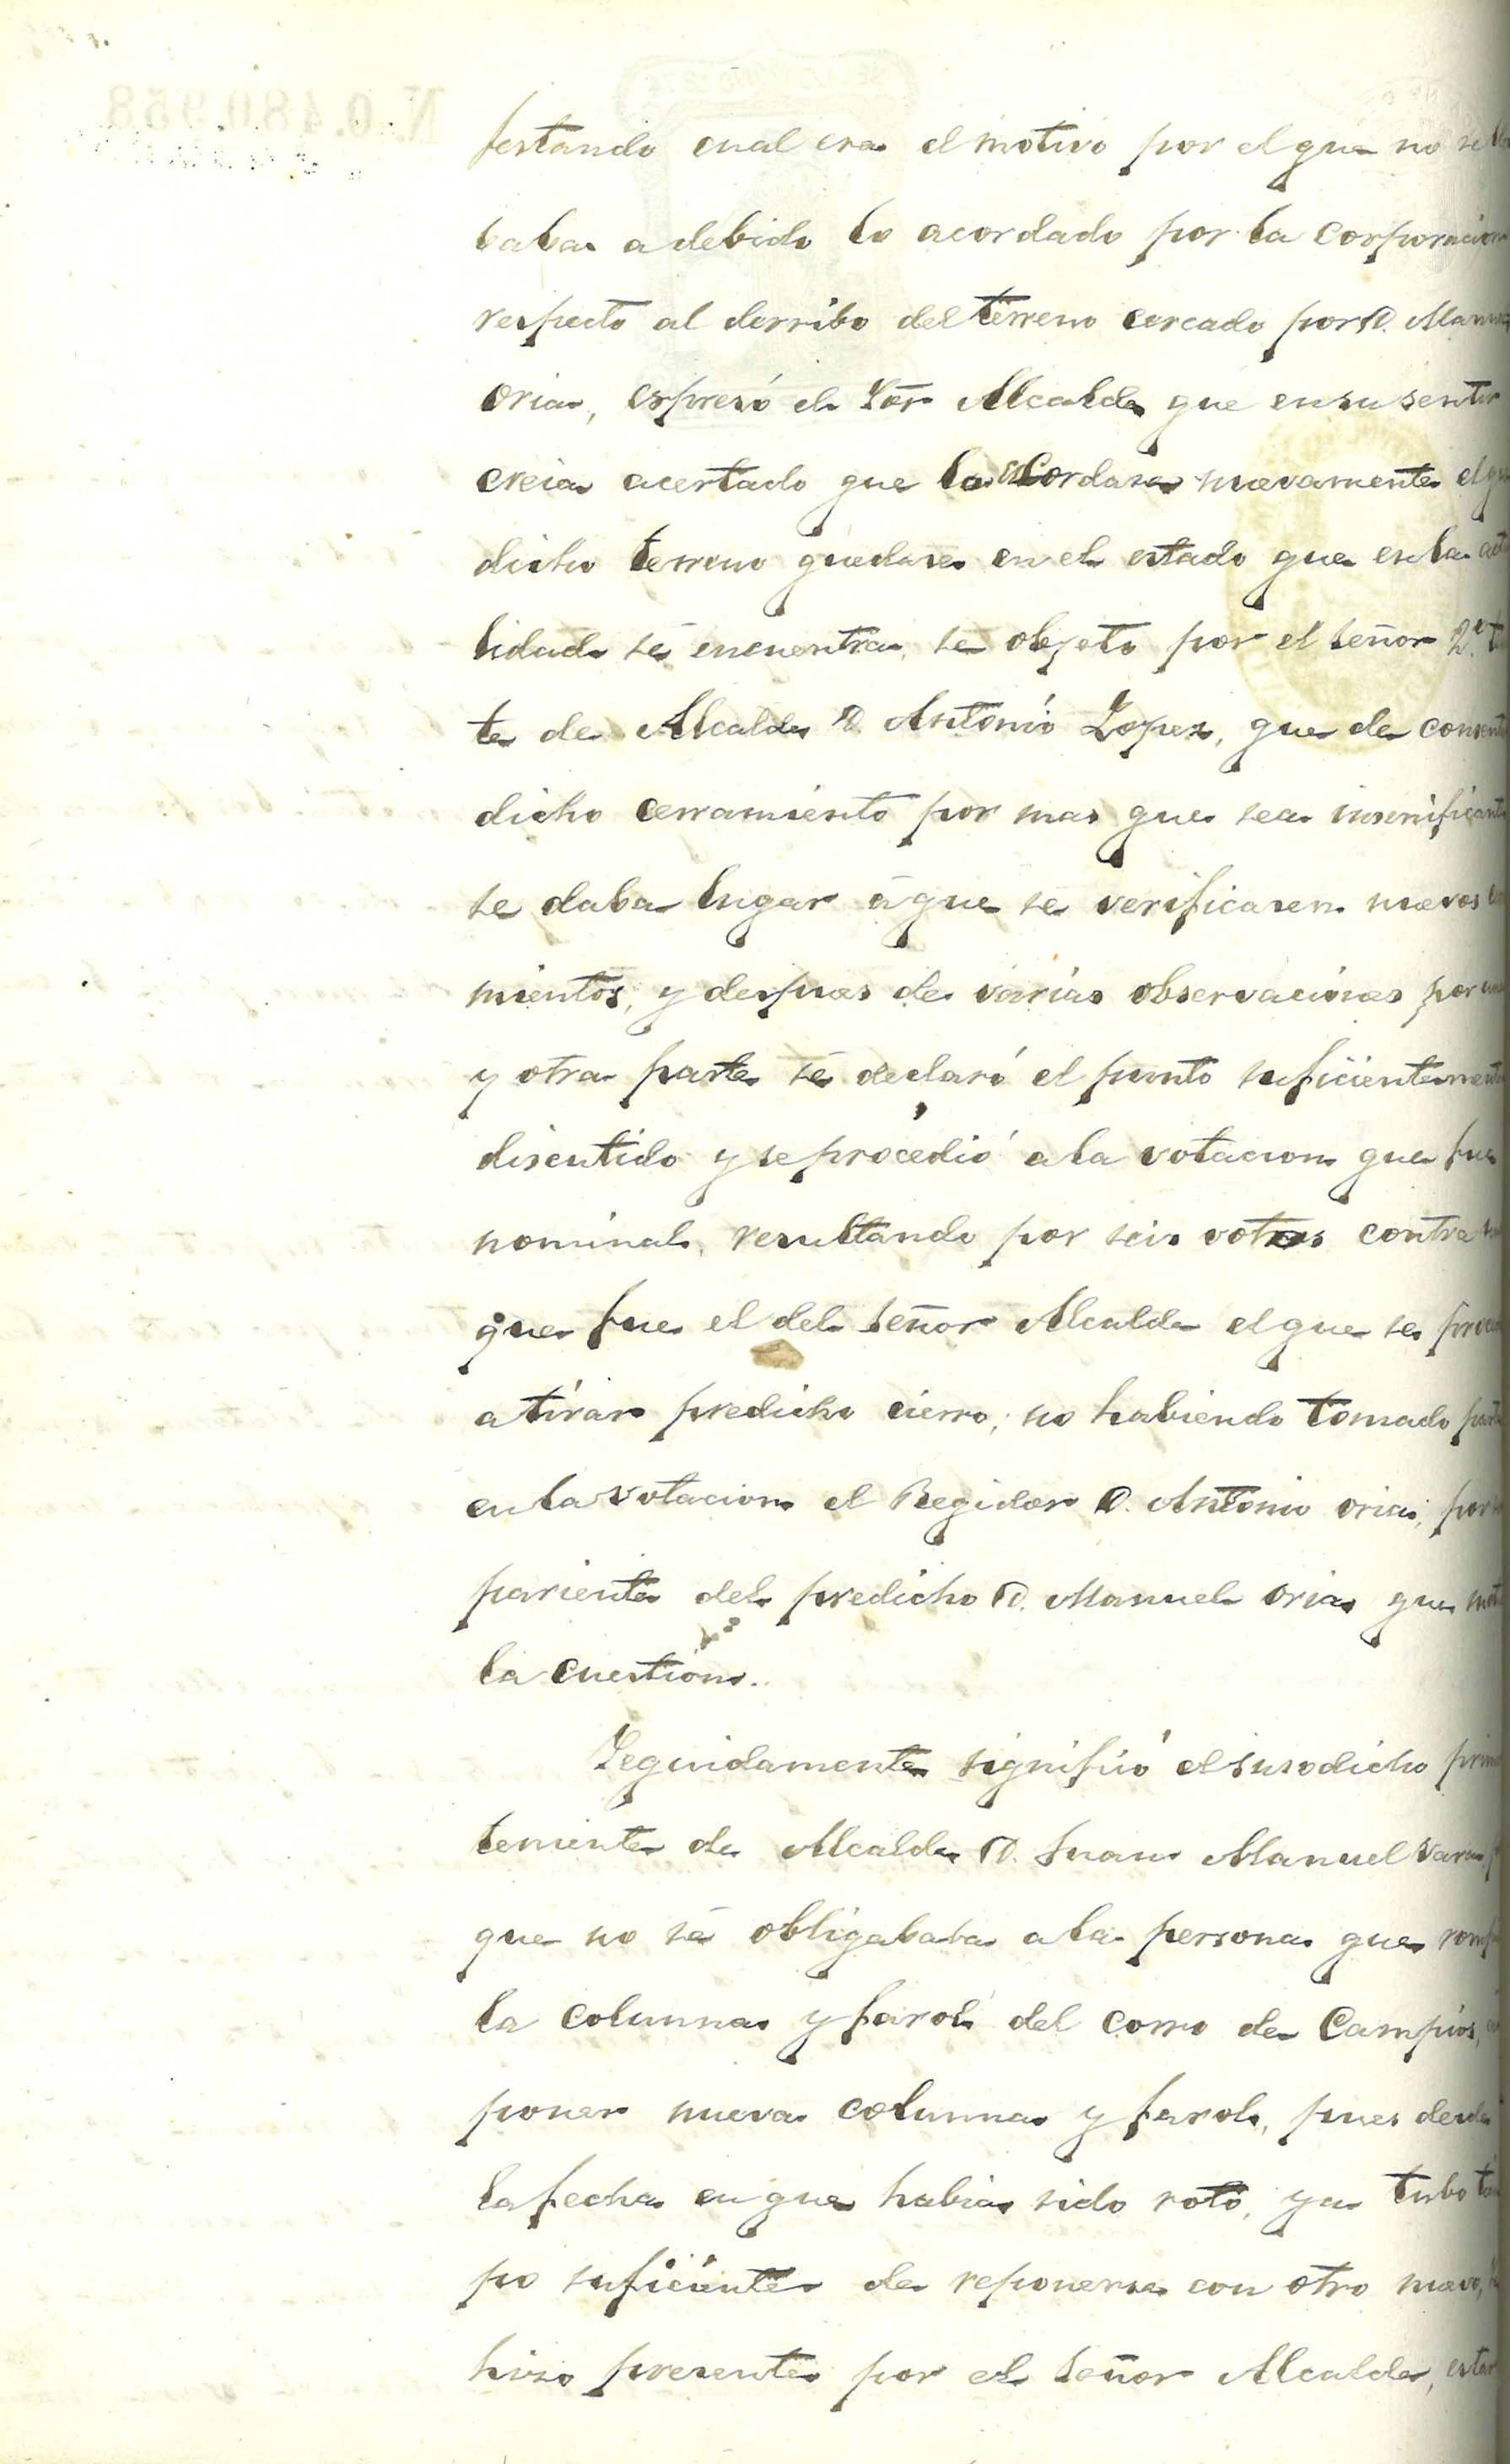 festando cual era el motivo por el que no se
baba a debido lo acordado por la corporacion
respecto al derribo del terreno cercado por D. Manuel
Oria, espresó el Sor Alcalde que en su sentir
creia acertado que la acordase nuevamente el que
dicho terreno quedase en el estado que en la
lidad se encuentra, se objetó por el señor 2º
te de Alcalde D. Antonio Lopez, que de consentir
dicho cerramiento por mas que sea insenificante
se daba lugar á que se verificasen nuevos
mientos, y despues de varias observaciones por una
y otra parte se declaró el punto suficientemente
discutido y se procedió a la votacion que fue
nominal, resultando por seis votos contra
que fue el del señor Alcalde el que se
a tirar predicho cierro; no habiendo tomado parte
en la votacion el Regidor D. Antonio oria, por
pariente del predicho D. Manuel oria que
la cuestion.
Seguidamente significó el susodicho
teniente de Alcalde D. Juan Manuel
que no se obligababa a la persona que
la columna y farol del corro de Campios,
poner nueva columna y farol, pues desde
la fecha en que habia sido roto, ya tubo
po suficiente de reponerse con otro nuevo,
hizo presente por el señor Alcalde, estar
N.0.480.958